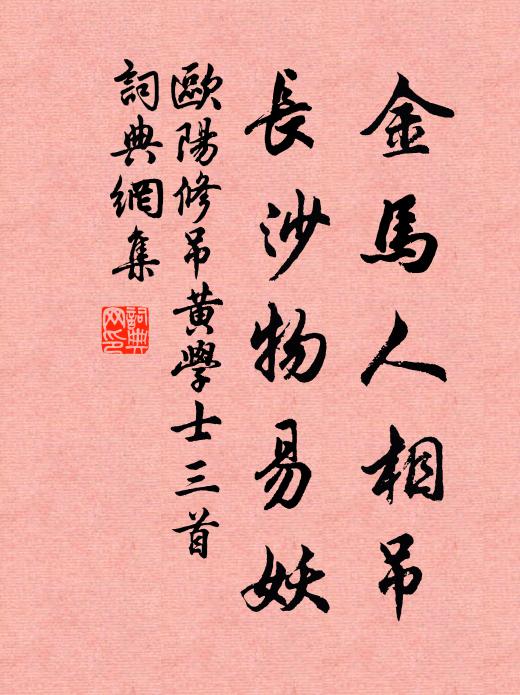 金馬人相吊
長沙物易妖
歐陽修吊黃學士三首
詞典網集
詞典网印